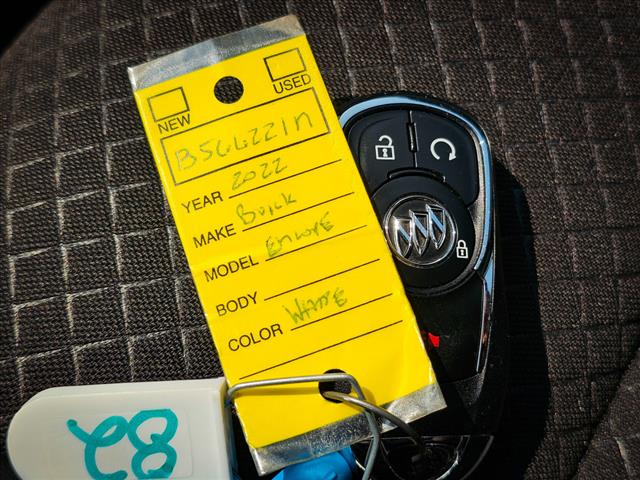 NEW USED
YEAR 2022
MAKE Buick
MODEL Encore
BODY
COLOR White
28